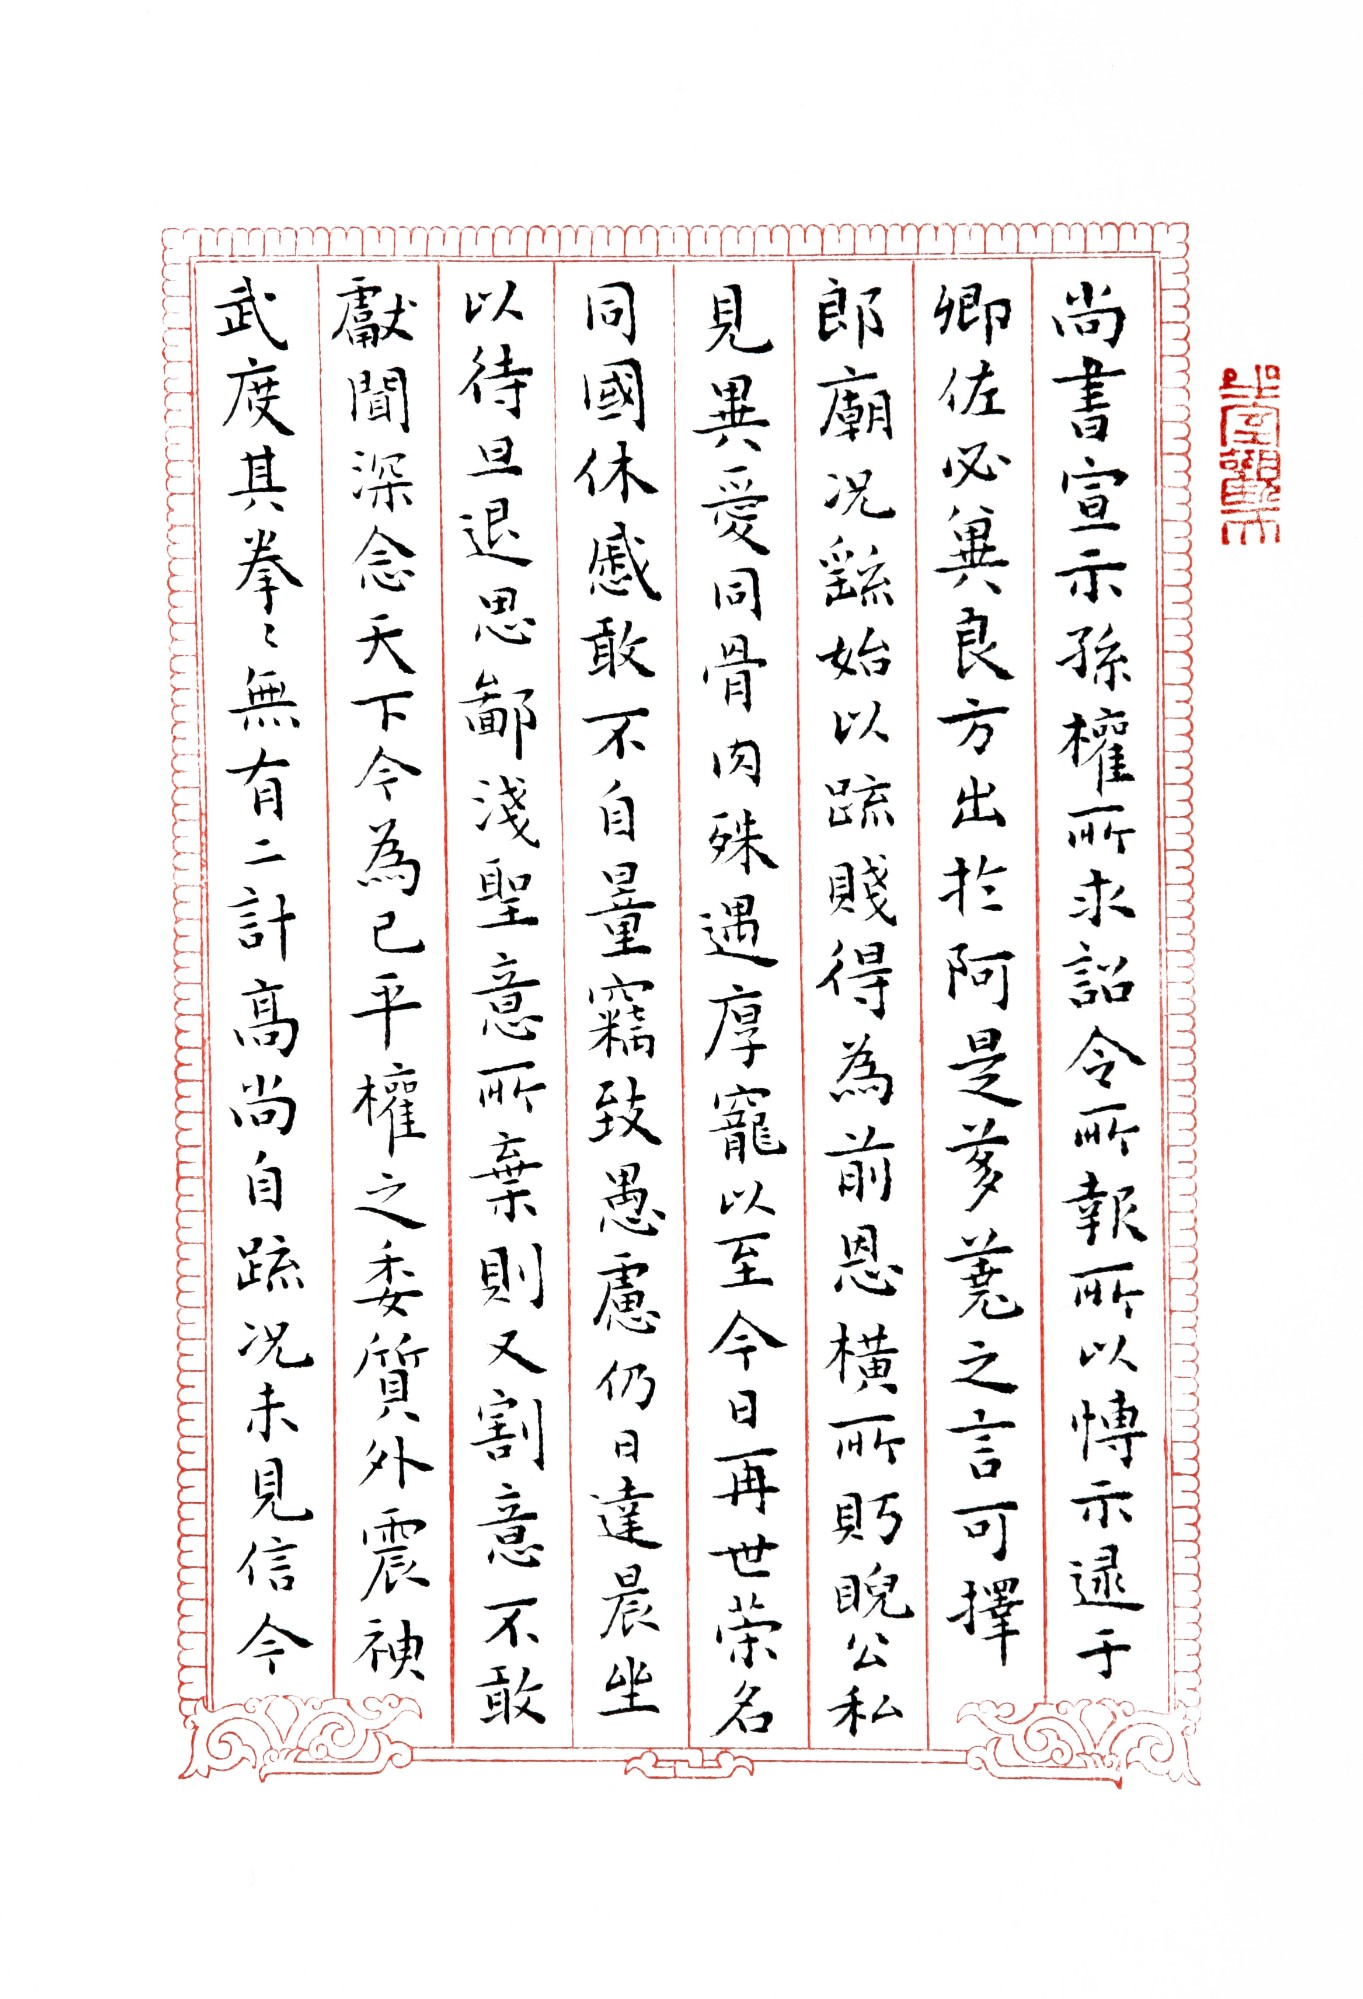 尚書宣示孫權所求詔令所報所以博示逮于
卿佐必冀良方出於阿是芻蕘之言可擇
郎廟况繇始以疏賤得為前恩橫所眄睨公私
見異愛同骨肉殊遇厚寵以至今日再世荣名
同國休慼敢不自量竊致愚慮仍日達晨坐
以待旦退思鄙淺聖意所棄則又割意不敢
獻聞深念天下今為已平權之委質外震神
武度其拳〻無有二計高尚自疏况未見信今